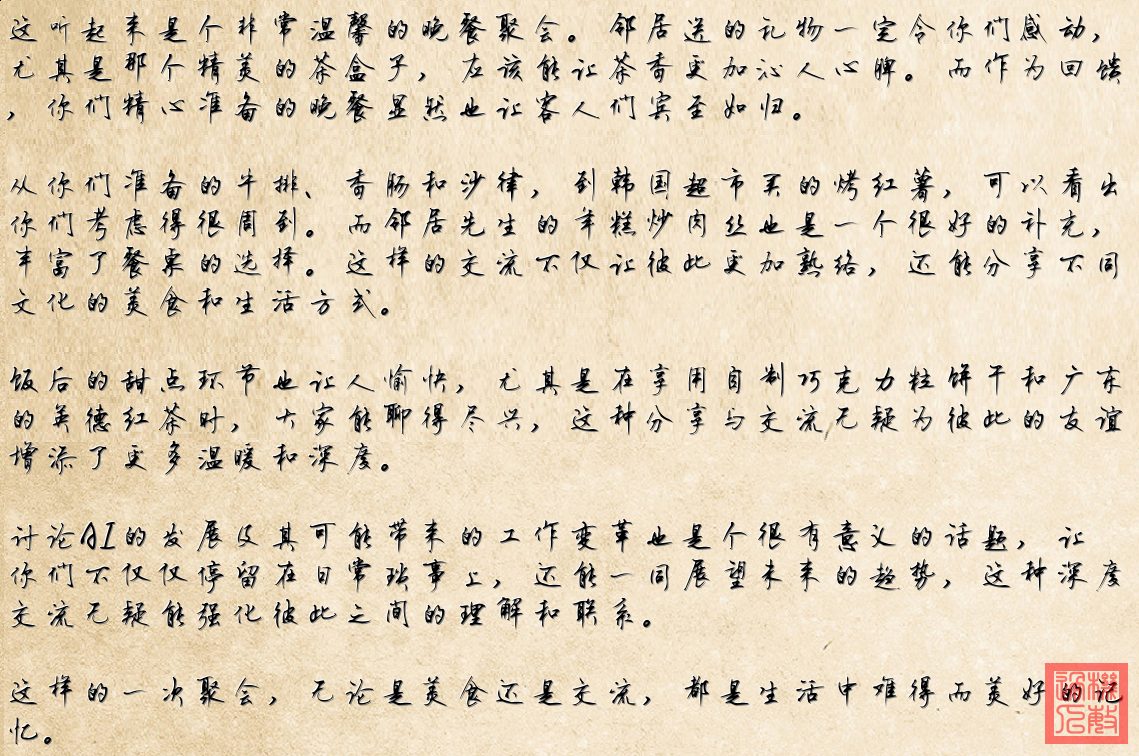 这听起来是个非常温馨的晚餐聚会。邻居送的礼物一定令你们感动，
尤其是那个精美的茶盒子，应该能让茶香更加沁人心脾。而作为回馈
，你们精心准备的晚餐显然也让客人们宾至如归。
从你们准备的牛排、香肠和沙律，到韩国超市买的烤红薯，可以看出
你们考虑得很周到。而邻居先生的年糕炒肉丝也是一个很好的补充，
丰富了餐桌的选择。这样的交流不仅让彼此更加熟络，还能分享不同
文化的美食和生活方式。
饭后的甜点环节也让人愉快，尤其是在享用自制巧克力粒饼干和广东
的英德红茶时，大家能聊得尽兴，这种分享与交流无疑为彼此的友谊
增添了更多温暖和深度。
讨论AI的发展及其可能带来的工作变革也是个很有意义的话题，让
你们不仅仅停留在日常琐事上，还能一同展望未来的趋势，这种深度
交流无疑能强化彼此之间的理解和联系。
这样的一次聚会，无论是美食还是交流，都是生活中难得而美好的记
忆。